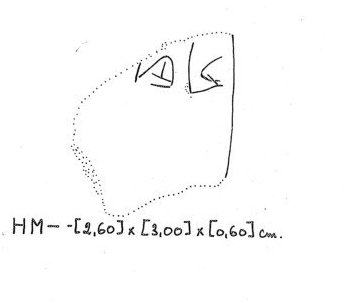 HM- -[2,60] x [3,00] x [0,60] cm.